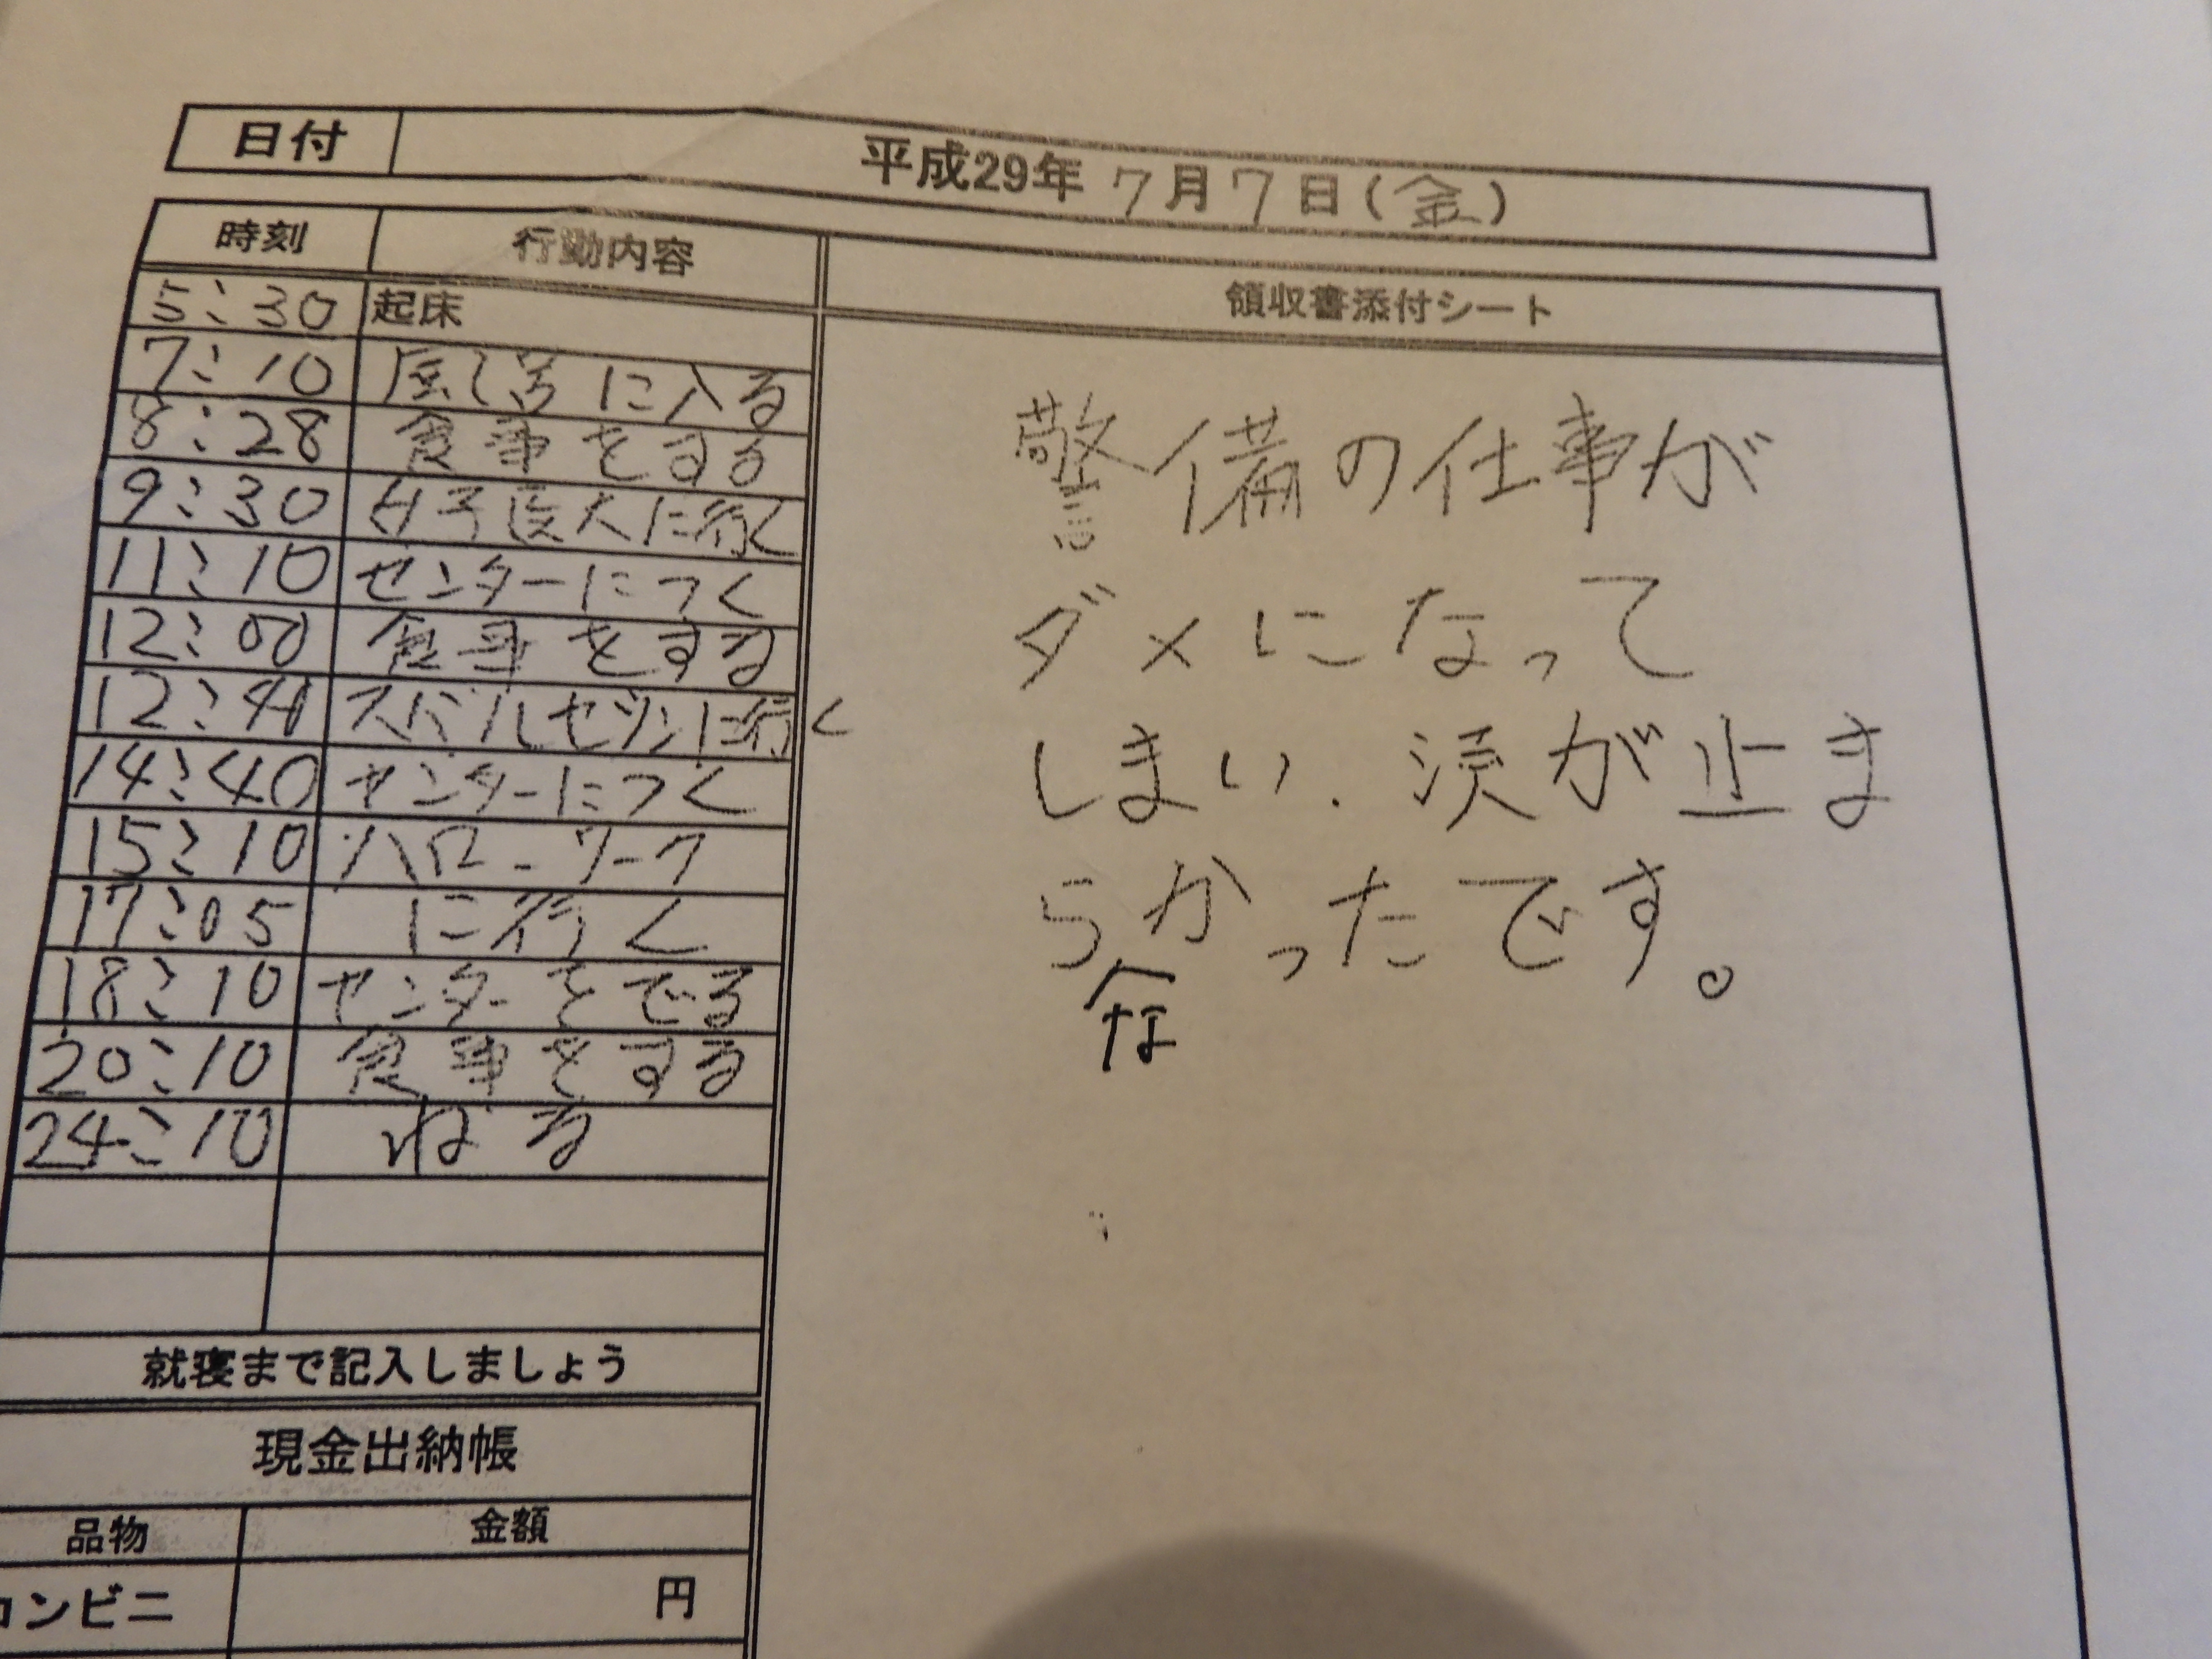 日付 平成29年 7月7日(金)
時刻 行動内容 領収書添付シート
5:30 起床
7:10 に入る
8:28 食事をする
9:30 女子医大に行く
11:10 センターにつく
12:00 食事をする
12:41 に行く
14:40 センターにつく
15:10 ハローワーク
17:05 に行く
18:10 センターをでる
20:10 食事をする
24:10 ねる
就寝まで記入しましょう
現金出納帳
品物 金額
コンビニ 円
警備の仕事が
ダメになって
しまい、涙が止ま
らかったです。
な